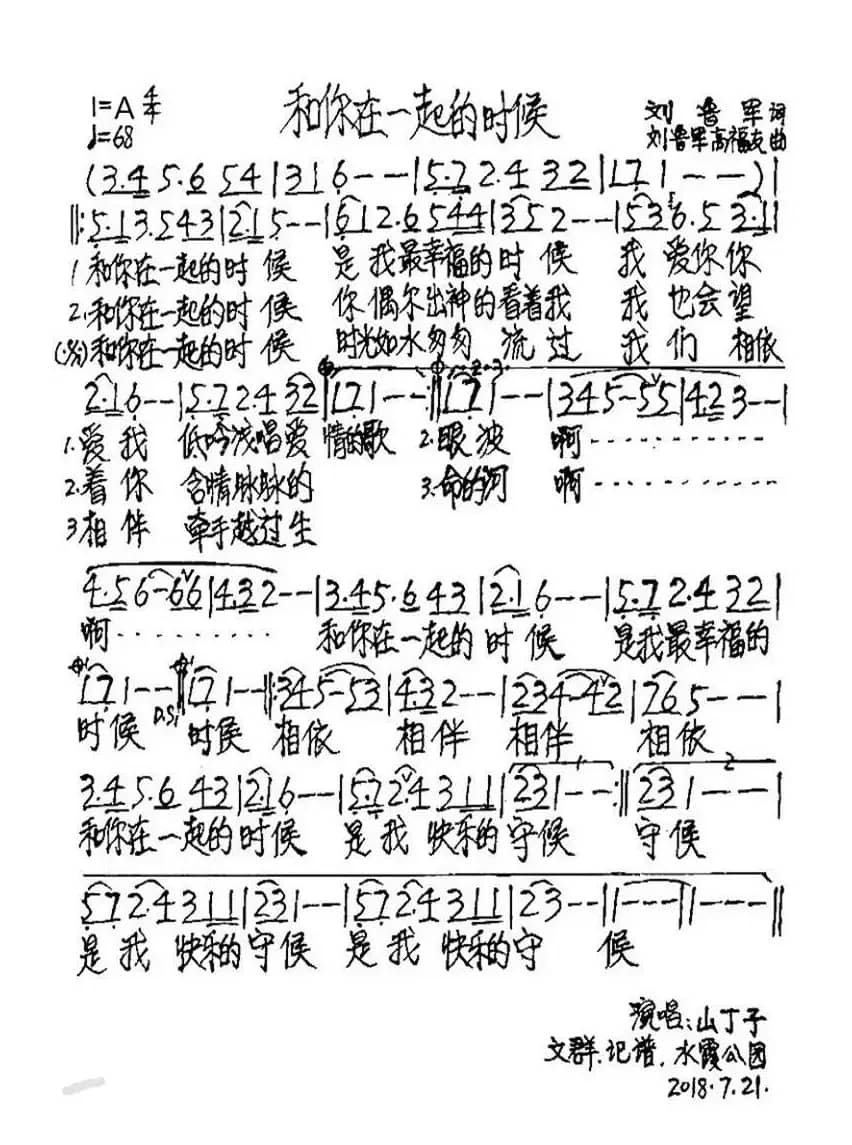 1=A 4/4
♩=68
和你在一起的时候
刘鲁军 词
刘鲁军高福友曲
(3.4 5.6 54|31 6--|5.7 2.4 32|17 1--)|
‖:5.1 3.5 43|2.1 5--|6 12.6 544|35 2--|53 6.5 3.1|
1 和你在一起的时候 是我最幸福的时候 我爱你你
2.和你在一起的时候 你偶尔出神的看着我 我也会望
(%)和你在一起的时候 时光如水匆匆流过 我们相依
2.1 6--|5.7 2.4 32|17 1--:‖17 1--|345-55|423--|
1.爱我 低吟浅唱爱情的歌 2.眼波 啊
2.着你 含情脉脉的 3.命的河 啊
3 相伴 牵手越过生
4.56-66|4.32--|3.4 5.6 43|2.1 6--|5.7 2.4 32|
啊 和你在一起的时候 是我最幸福的
17 1--‖17 1--‖:345-53|4.32--|234-42|76 5--|
D.S.
时候 时候 相依 相伴 相伴 相依
3.4 5.6 43|2.1 6--|57 2.4 311|231--:‖231--|
和你在一起的时候 是我快乐的守候 守候
57 2.4 311|231--|57 2.4 311|23--|1---|1---‖
是我快乐的守候 是我快乐的守候
演唱:山丁子
文群.记谱.水霞公园
2018.7.21.